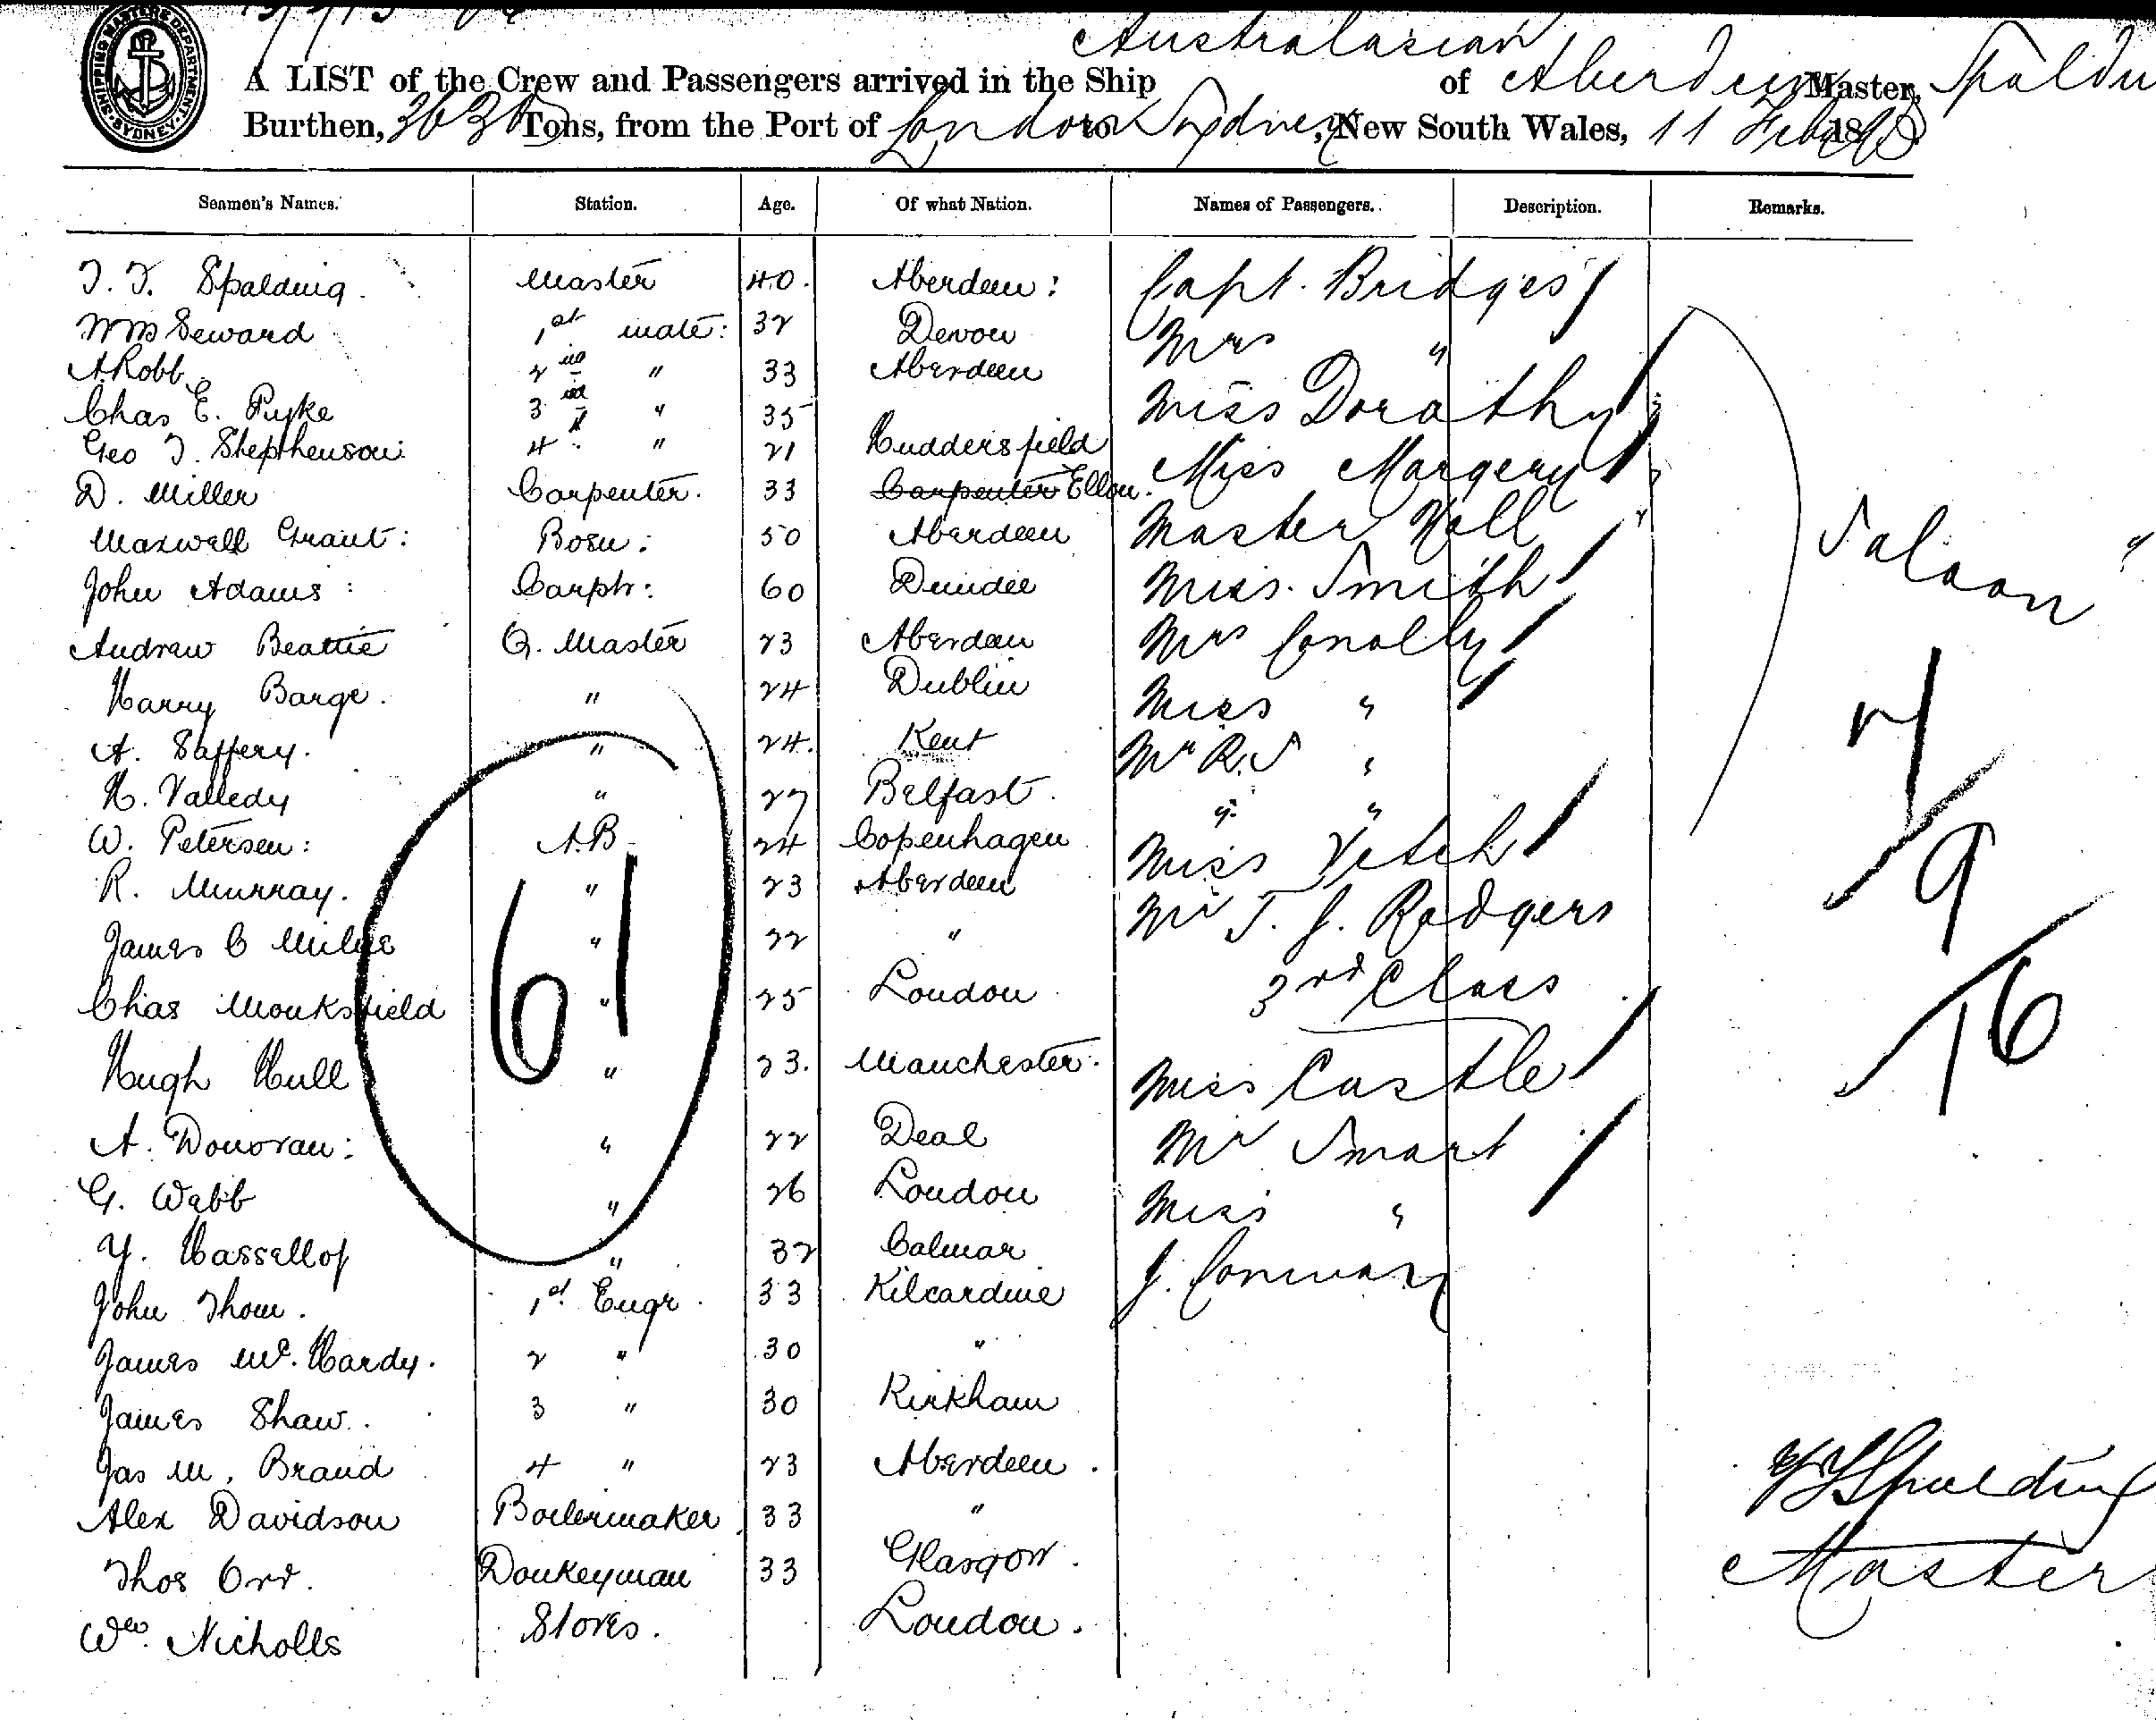 SHIPPING MASTERS DEPARTMENT SYDNEY
Australasian
A LIST of the Crew and Passengers arrived in the Ship of Aberdeen Master,
Burthen, 3630 Tons, from the Port of London to Sydney, New South Wales, 11 Feb 18
Seamen's Names. Station. Age. Of what Nation. Names of Passengers. Description. Remarks.
T. T. Spalding. Master 40. Aberdeen: Capt. Bridges
Wm Seward 1st mate: 32 Devon Mrs "
A Robb 2nd " 33 Aberdeen Miss Dorathy
Chas E. Pyke 3rd " 35 Miss Margery
Geo T. Stephenson: 4 " 21 Huddersfield
D. Miller Carpenter. 33 Carpenter Ellon. Master Noll "
Maxwell Grant: Bosn: 50 Aberdeen Miss. Smith
John Adams: Carptr: 60 Dundee Mrs Conolly
Andrew Beattie Q. Master 23 Aberdeen Miss "
Harry Barge. " 24 Dublin Mr R. S "
A. Saffery. " 24. Kent " "
H. Valledy " 27 Belfast. Miss Vetch
W. Petersen: A.B 24 Copenhagen Mr T. J. Rodgers
R. Murray. " 23 Aberdeen
James C Milne " 22 " 3rd Class
Chas Monksfield " 25 London
Hugh Hull " 23. Manchester. Miss Castle
A. Donovan: " 22 Deal Mr Smart
G. Webb " 26 London Miss "
Y. Hassellof " 32 Calmar J. Conway
John Thom. 1st Engr. 33 Kilcardine
James Mc. Hardy. 2 " 30 "
James Shaw. 3 " 30 Kirkham
Jas M. Brand 4 " 23 Aberdeen.
Alex Davidson Boilermaker 33 "
Thos Orr. Donkeyman 33 Glasgow.
Wm. Nicholls Stores. London.
61
Saloon "
7
9
16
Spalding
Master